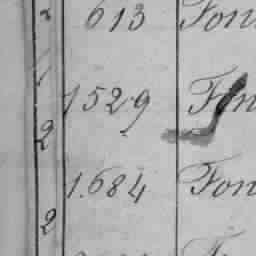 2 613 Fon
1529 Fon
2
1.684 Fon
2